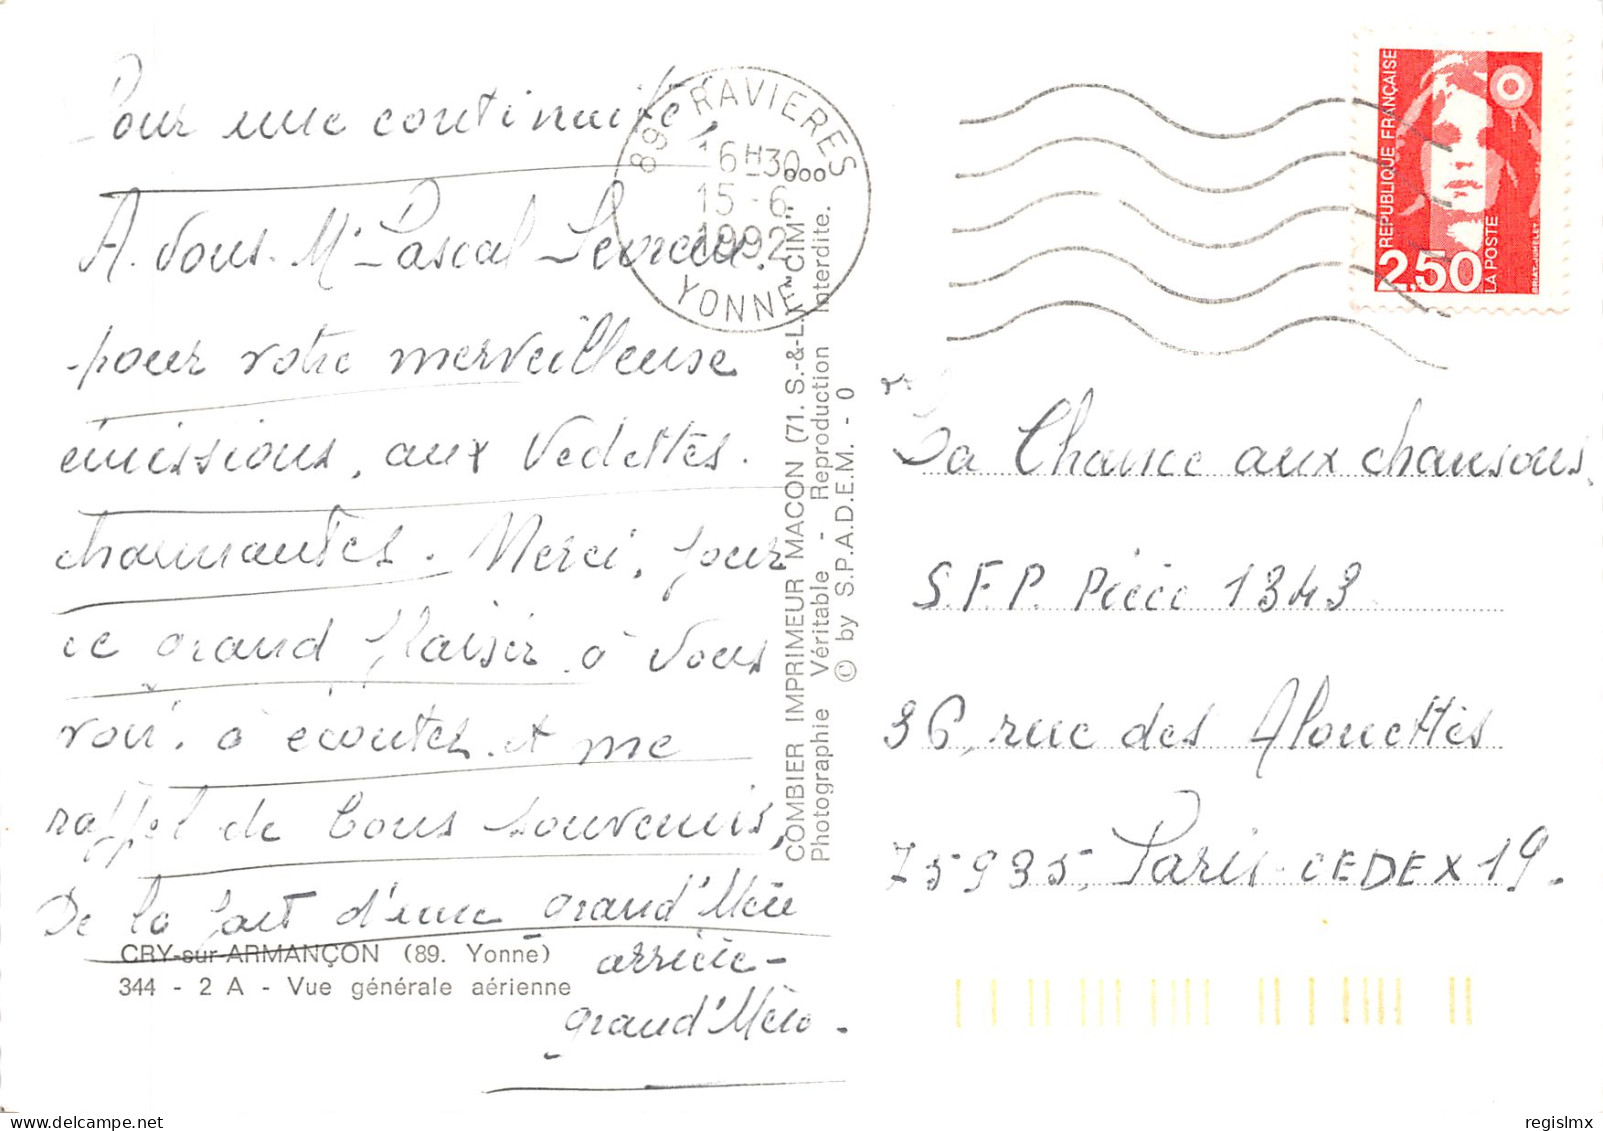 Pour une continuité,
A. Vous. Mr Pascal Sevran.
pour votre merveilleuse
émissions, aux Vedettes.
charmantes. Merci, pour
ce grand plaisir à Vous
voir, à écoutes. et me
rappel de bons souvenirs,
De la part d'une grand'Mère
arrière-
grand'Mère.
CRY-sur-ARMANÇON (89. Yonne)
344 - 2 A - Vue générale aérienne
89 RAVIERES
16H30
15-6
1992
YONNE
COMBIER IMPRIMEUR MACON (71. S.-&-L.) "CIM"
Photographie Véritable - Reproduction interdite.
© by S.P.A.D.E.M. - 0
REPUBLIQUE FRANÇAISE
2,50
LA POSTE
BRIAT-JUMELET
La Chance aux chansons,
S.F.P. Pièce 1343
36, rue des Alouettes
75935, Paris-CEDEX 19.
www.delcampe.net
regislmx